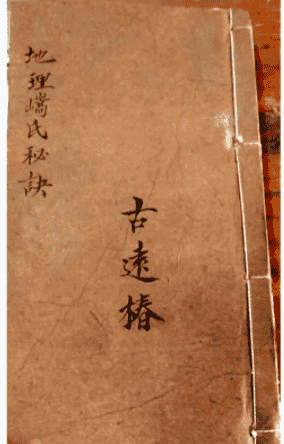 地理嶠氏秘訣
古遠椿